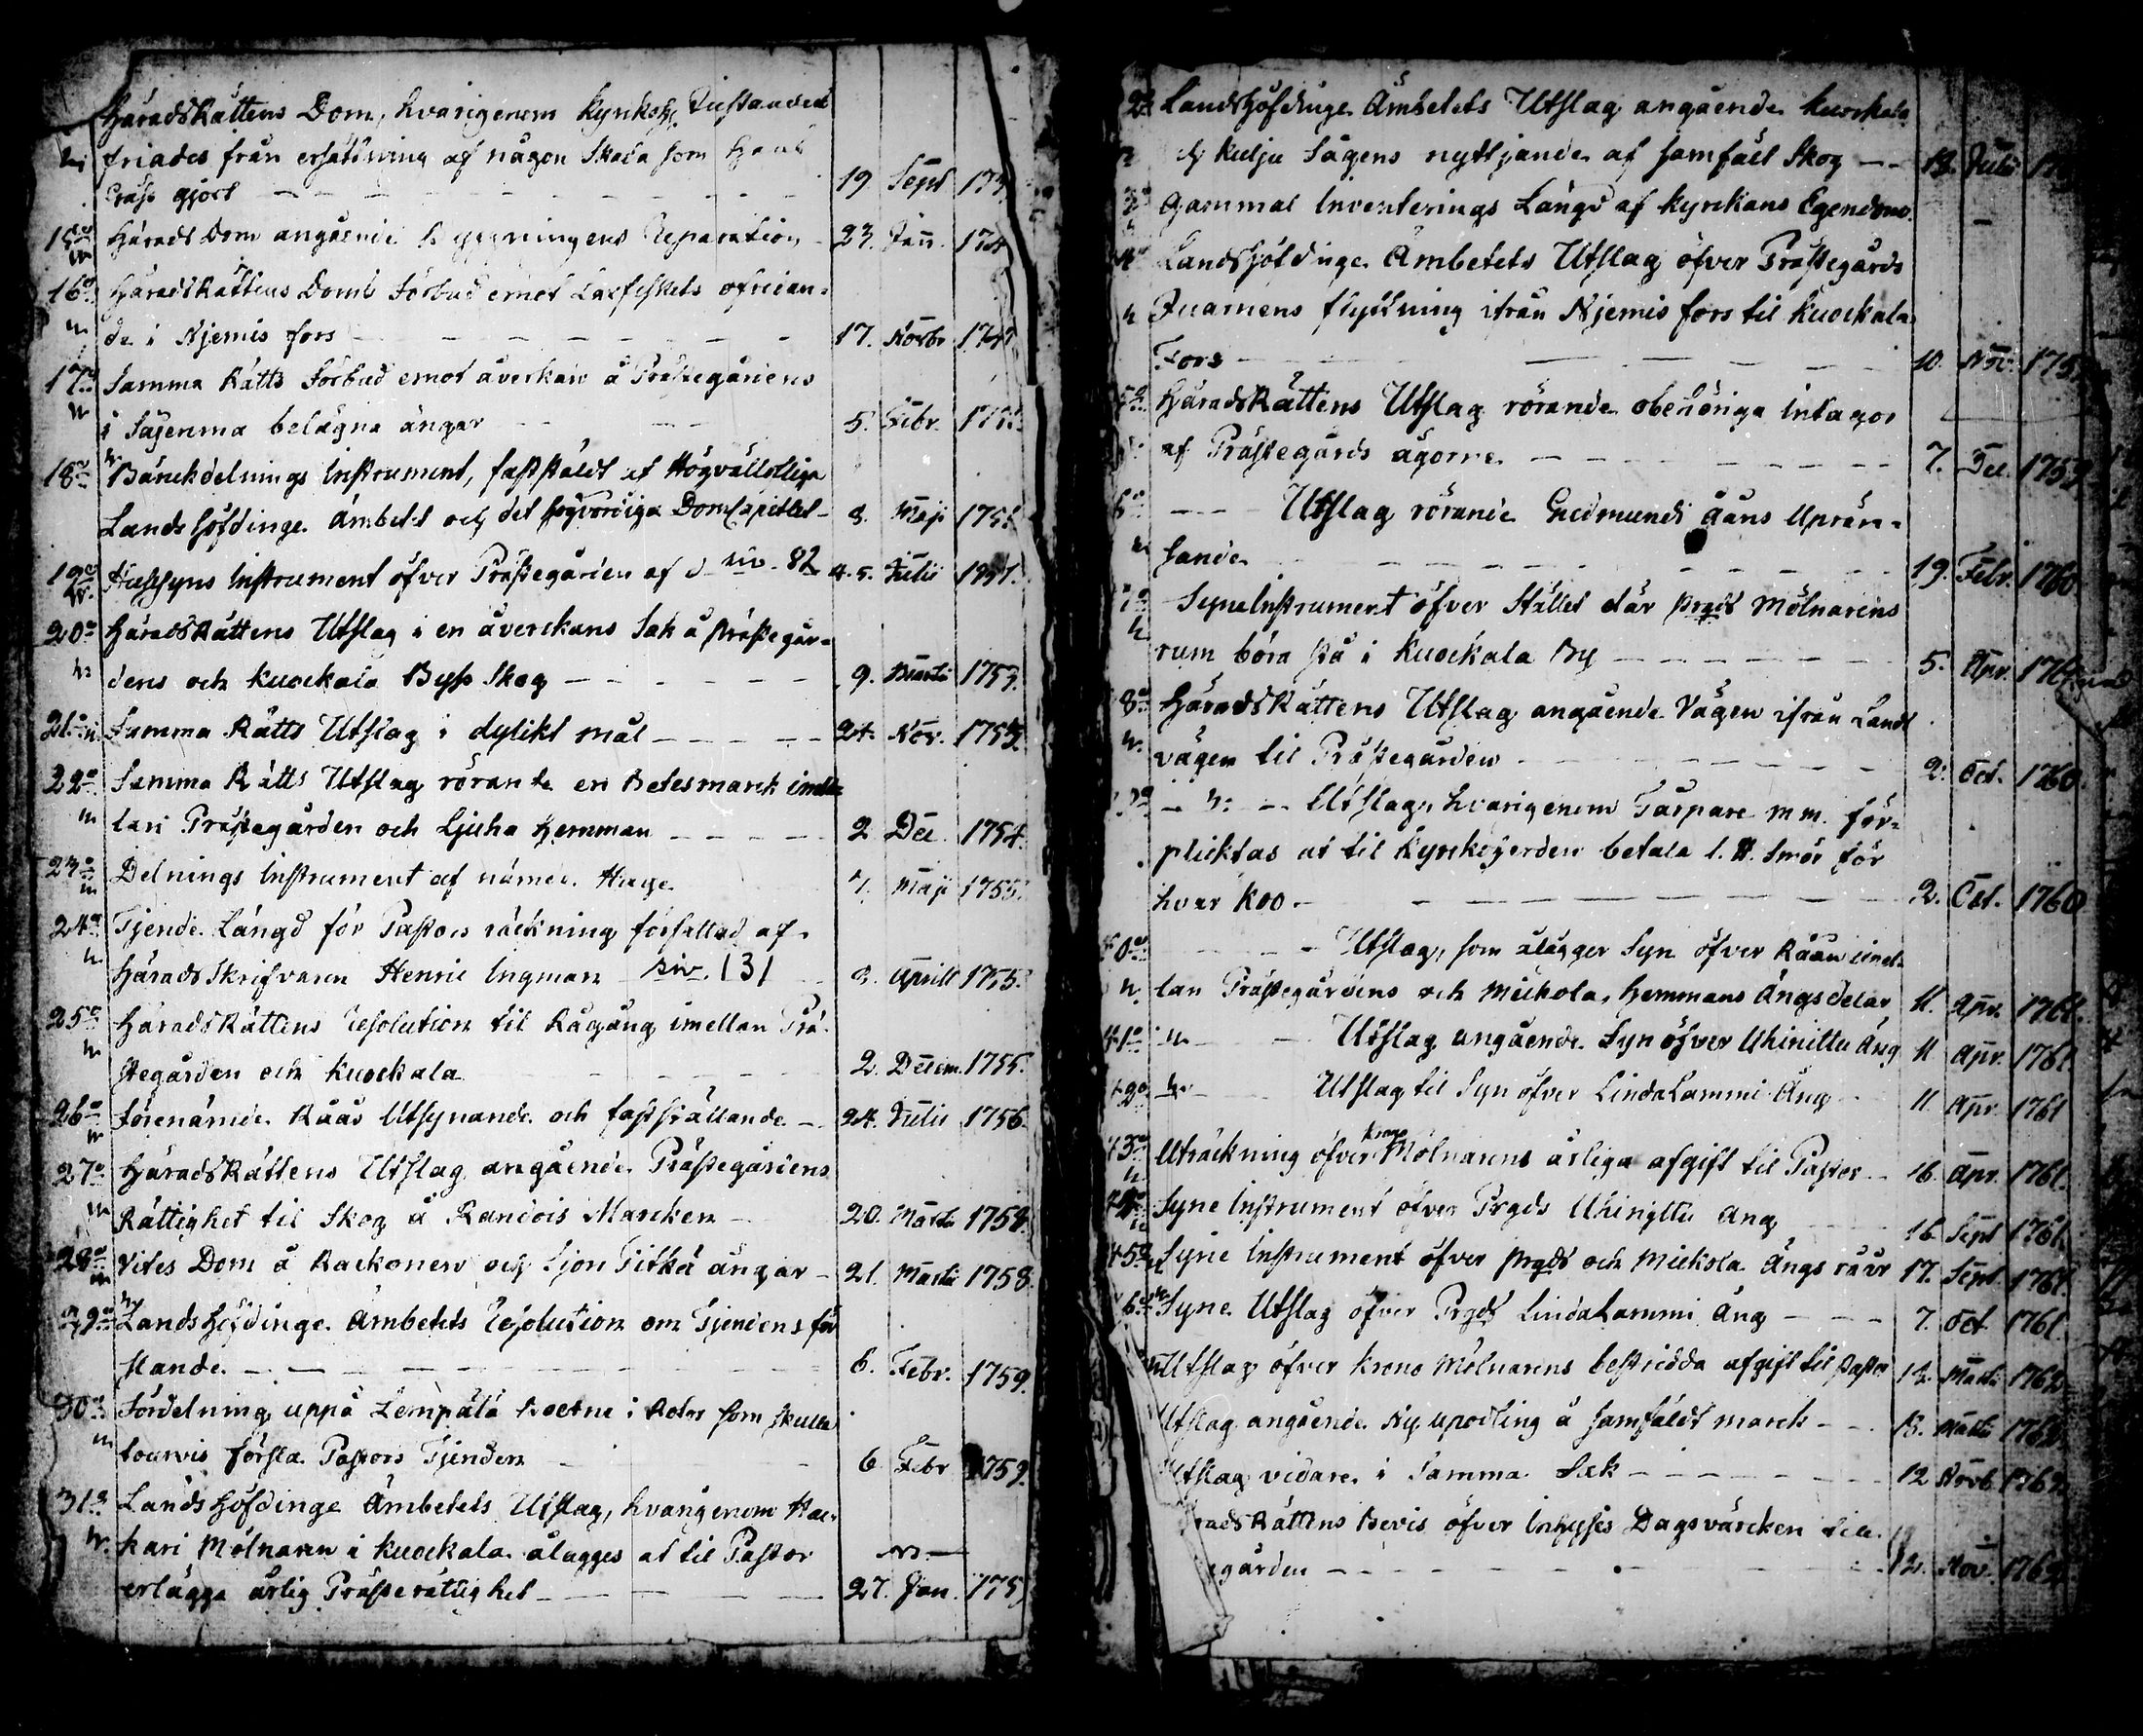 HäradsRättens Dom, hvarigenom Kyrkoh
friades från ersättning af någon Skada som
gjort 19. Sept 17
15 Härads Dom angående Byggningens Reparation 23. Jan. 174
16 HäradsRättens Doml Förbud emot Laxfiskets ofredan-
de i Njemis fors 17. Novbr 174
17 Samma Rätts Förbud emot åverkan å Prästegårdens
i Sajenma belägna ängar 5. Febr. 175
18 Bänckdelnings Instrument, fastställdt af Högvällofliga
Landshöfdinge Ämbetet och det högvördiga DomCapitlet 8. Maji 175
19 Huussyns Instrument öfver Prästegården af d siv. 82 4. 5. Julii 1751.
20 HäradsRättens Utslag i en åverckans Sak å Prästegår-
dens och Kuockala Byss Skog 9. Martii 1753.
21 Samma Rätts Utslag i dylikt mål 24. Nov. 1753.
22 Samma Rätts Utslag rörande en Betesmarck imel-
lan Prästegården och Ljuha Hemman 2. Dec. 1754.
23 Delnings Instrument af nämde Hage 7. Maji 1755.
24 Tjende Längd för Pastors räckning författad af
HäradsSkrifvaren Henric Ingman siv. 131 3. Aprill 1755.
25 HäradsRättens Resolution til Rågång imellan Prä-
stegården och Kuockala 2. Decem. 1755.
26 Förenämde Råås Utsynande och fastställande 24. Julii 1756.
27 HäradsRättens Utslag angående Prästegårdens
Rättighet til Skog å Randois Marcken 20. Martii 1758.
28 Vites Dom å Rackonen och Sjon Titkä ängar 21. Martii 1758.
29 Landshöfdinge Ämbetets Resolution om Tjendens för
slande 6. Febr. 1759.
30 Fördelning uppå Lempälä Boerne i Rotar som skulle
tourvis försla Pastors Tjenden 6 Febr 1759.
31 Landshöfdinge Ämbetets Utslag, hvarigenom Hac-
kari Mölnaren i Kuockala ålägges at til Pastor
erlägga årlig Prästerättighet 27. Jan. 1759
Landshöfdinge Ämbetets Utslag angående Kuockala
och Kulju Sågens nyttjande af samfält Skog 13. Julii 17
Gammal Inventerings Längd af Kyrckans Egendom.
Landshöfdinge Ämbetets Utslag öfver Prästegårds
Quarnens flyttning ifrån Njemis fors til Kuockala
Fors 10. Nov. 175
HäradsRättens Utslag rörande obehöriga Intagor
af Prästegårds ägorne 7. Dec. 1759
6 Utslag rörande Gudmundi Åans Uprän-
sande 19. Febr. 1760
7 SyneInstrument öfver Stället där prgds Mölnarens
rum böra stå i Kuockala By 5. Apr. 176
8 HäradsRättens Utslag angående Vägen ifrån Lands
vägen til Prästegården 2. Oct. 1760.
Utslag, hvarigenom Torpare m.m. för-
plicktas at til Kyrkoherden betala 1. ℔. Smör för
hvar Koo 2. Oct. 1760
40 Utslag, som ålägger Syn öfver Råån imel-
lan Prästegårdens och Mickola Hemmans Ängsdelar 11. Apr. 1761.
41 Utslag angående Syn öfver Uhinittu Äng 11 Apr. 1761.
42 Utslag til Syn öfver LindaLammi Äng 11 Apr. 1761
43 Uträckning öfver Krono Mölnarens årliga afgift til Pastor 16. Apr. 1761.
44 Syne Instrument öfver Prgds Uhinyttu Äng 16 Sept 1761.
45 Syne Instrument öfver prgds och Mickola Ängs råår 17. Sept. 1761.
6 Syne Utslag öfver Prgds LindaLammi Äng 7. Oct 1761.
Utslag öfver Krono Mölnarens bestridda afgift til Pastor 13. Martii 1762
Utslag angående Ny upodling å samfäldt marck 13. Martii 1762.
Utslag vidare i Samma Sak 12 Novb 1762.
radsRättens Bevis öfver Inhyses Dagsvärcken
gården 12. Nov. 1762